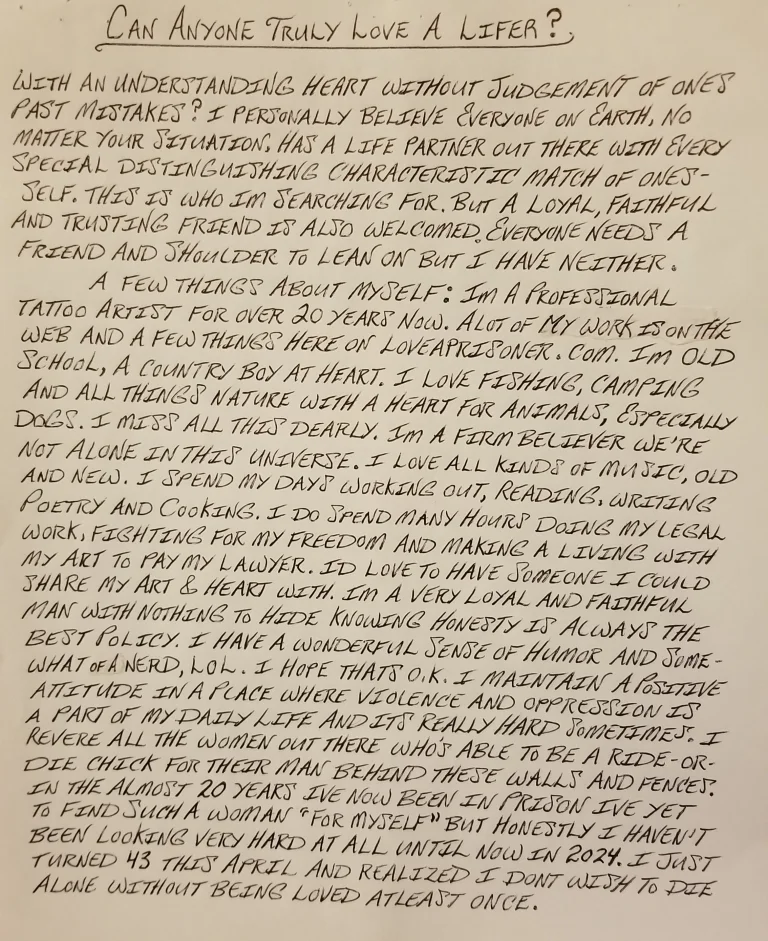 CAN ANYONE TRULY LOVE A LIFER?
WITH AN UNDERSTANDING HEART WITHOUT JUDGEMENT OF ONES
PAST MISTAKES? I PERSONALLY BELIEVE EVERYONE ON EARTH, NO
MATTER YOUR SITUATION, HAS A LIFE PARTNER OUT THERE WITH EVERY
SPECIAL DISTINGUISHING CHARACTERISTIC MATCH OF ONES-
SELF. THIS IS WHO IM SEARCHING FOR. BUT A LOYAL, FAITHFUL
AND TRUSTING FRIEND IS ALSO WELCOMED. EVERYONE NEEDS A
FRIEND AND SHOULDER TO LEAN ON BUT I HAVE NEITHER.
A FEW THINGS ABOUT MYSELF: IM A PROFESSIONAL
TATTOO ARTIST FOR OVER 20 YEARS NOW. ALOT OF MY WORK IS ON THE
WEB AND A FEW THINGS HERE ON LOVEAPRISONER.COM. IM OLD
SCHOOL, A COUNTRY BOY AT HEART. I LOVE FISHING, CAMPING
AND ALL THINGS NATURE WITH A HEART FOR ANIMALS, ESPECIALLY
DOGS. I MISS ALL THIS DEARLY. IM A FIRM BELIEVER WE'RE
NOT ALONE IN THIS UNIVERSE. I LOVE ALL KINDS OF MUSIC, OLD
AND NEW. I SPEND MY DAYS WORKING OUT, READING, WRITING
POETRY AND COOKING. I DO SPEND MANY HOURS DOING MY LEGAL
WORK, FIGHTING FOR MY FREEDOM AND MAKING A LIVING WITH
MY ART TO PAY MY LAWYER. ID LOVE TO HAVE SOMEONE I COULD
SHARE MY ART & HEART WITH. IM A VERY LOYAL AND FAITHFUL
MAN WITH NOTHING TO HIDE KNOWING HONESTY IS ALWAYS THE
BEST POLICY. I HAVE A WONDERFUL SENSE OF HUMOR AND SOME-
WHAT OF A NERD, LOL. I HOPE THATS O.K. I MAINTAIN A POSITIVE
ATTITUDE IN A PLACE WHERE VIOLENCE AND OPPRESSION IS
A PART OF MY DAILY LIFE AND ITS REALLY HARD SOMETIMES. I
REVERE ALL THE WOMEN OUT THERE WHO'S ABLE TO BE A RIDE-OR-
DIE CHICK FOR THEIR MAN BEHIND THESE WALLS AND FENCES.
IN THE ALMOST 20 YEARS IVE NOW BEEN IN PRISON IVE YET
TO FIND SUCH A WOMAN "FOR MYSELF" BUT HONESTLY I HAVEN'T
BEEN LOOKING VERY HARD AT ALL UNTIL NOW IN 2024. I JUST
TURNED 43 THIS APRIL AND REALIZED I DONT WISH TO DIE
ALONE WITHOUT BEING LOVED ATLEAST ONCE.